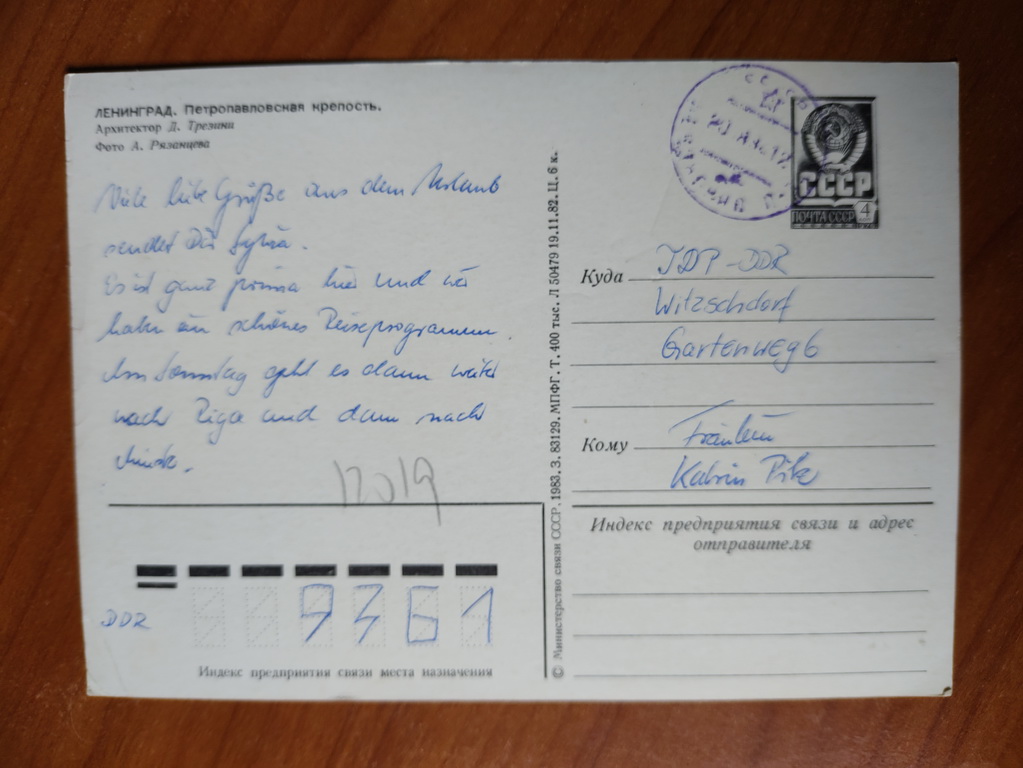 ЛЕНИНГРАД. Петропавловская крепость.
Архитектор Д. Трезини
Фото А. Рязанцева
Viele liebe Grüße aus dem Urlaub
sendet Dir Sylvia.
Es ist ganz prima hier und wir
haben ein schönes Reiseprogramm.
Am Sonntag geht es dann weiter
nach Riga und dann nach
Minsk.
12019
DDR
9361
Индекс предприятия связи места назначения
© Министерство связи СССР. 1983. З. 83129. МПФГ. Т. 400 тыс. Л 50479 19.11.82. Ц. 6 к.
СССР
ПОЧТА СССР 4
Куда
DDR
Witzschdorf
Gartenweg 6
Кому
Fräulein
Katrin
Индекс предприятия связи и адрес
отправителя